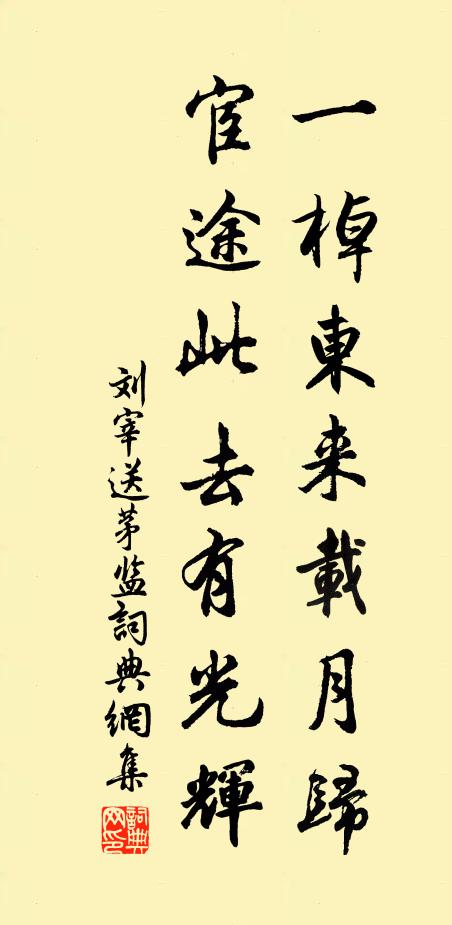 一棹東来載月歸
宦途此去有光輝
刘宰送茅监詞典網集
詞典网印